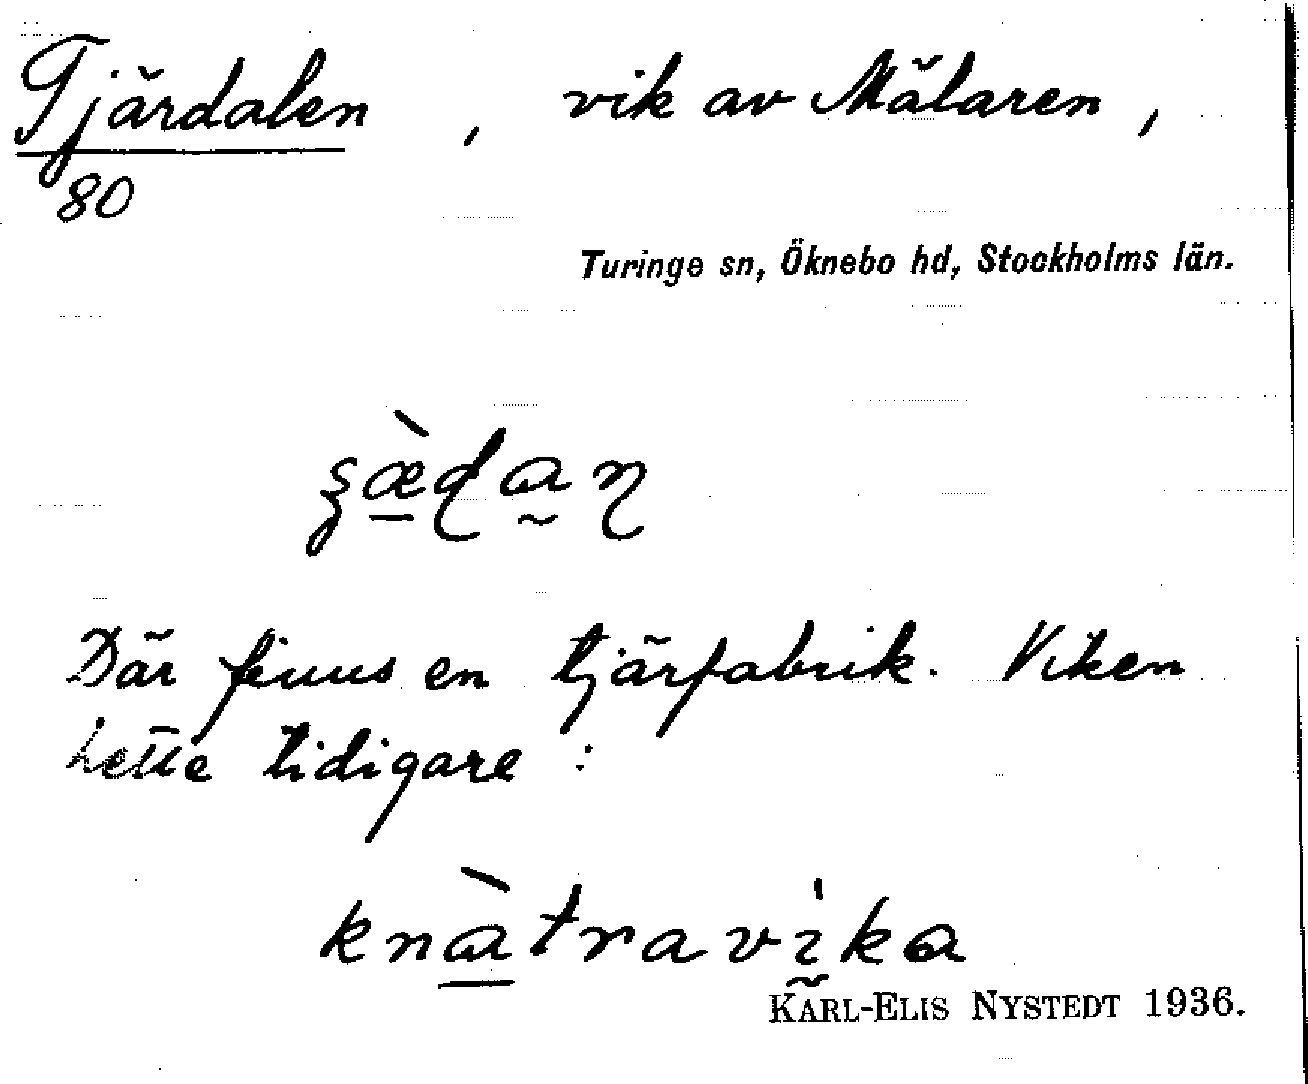 Tjärdalen, vik av Mälaren,
80
Turinge sn, Öknebo hd, Stockholms län.
Där finns en tjärfabrik. Viken
hette tidigare:
knàtravìka
KARL-ELIS NYSTEDT 1936.